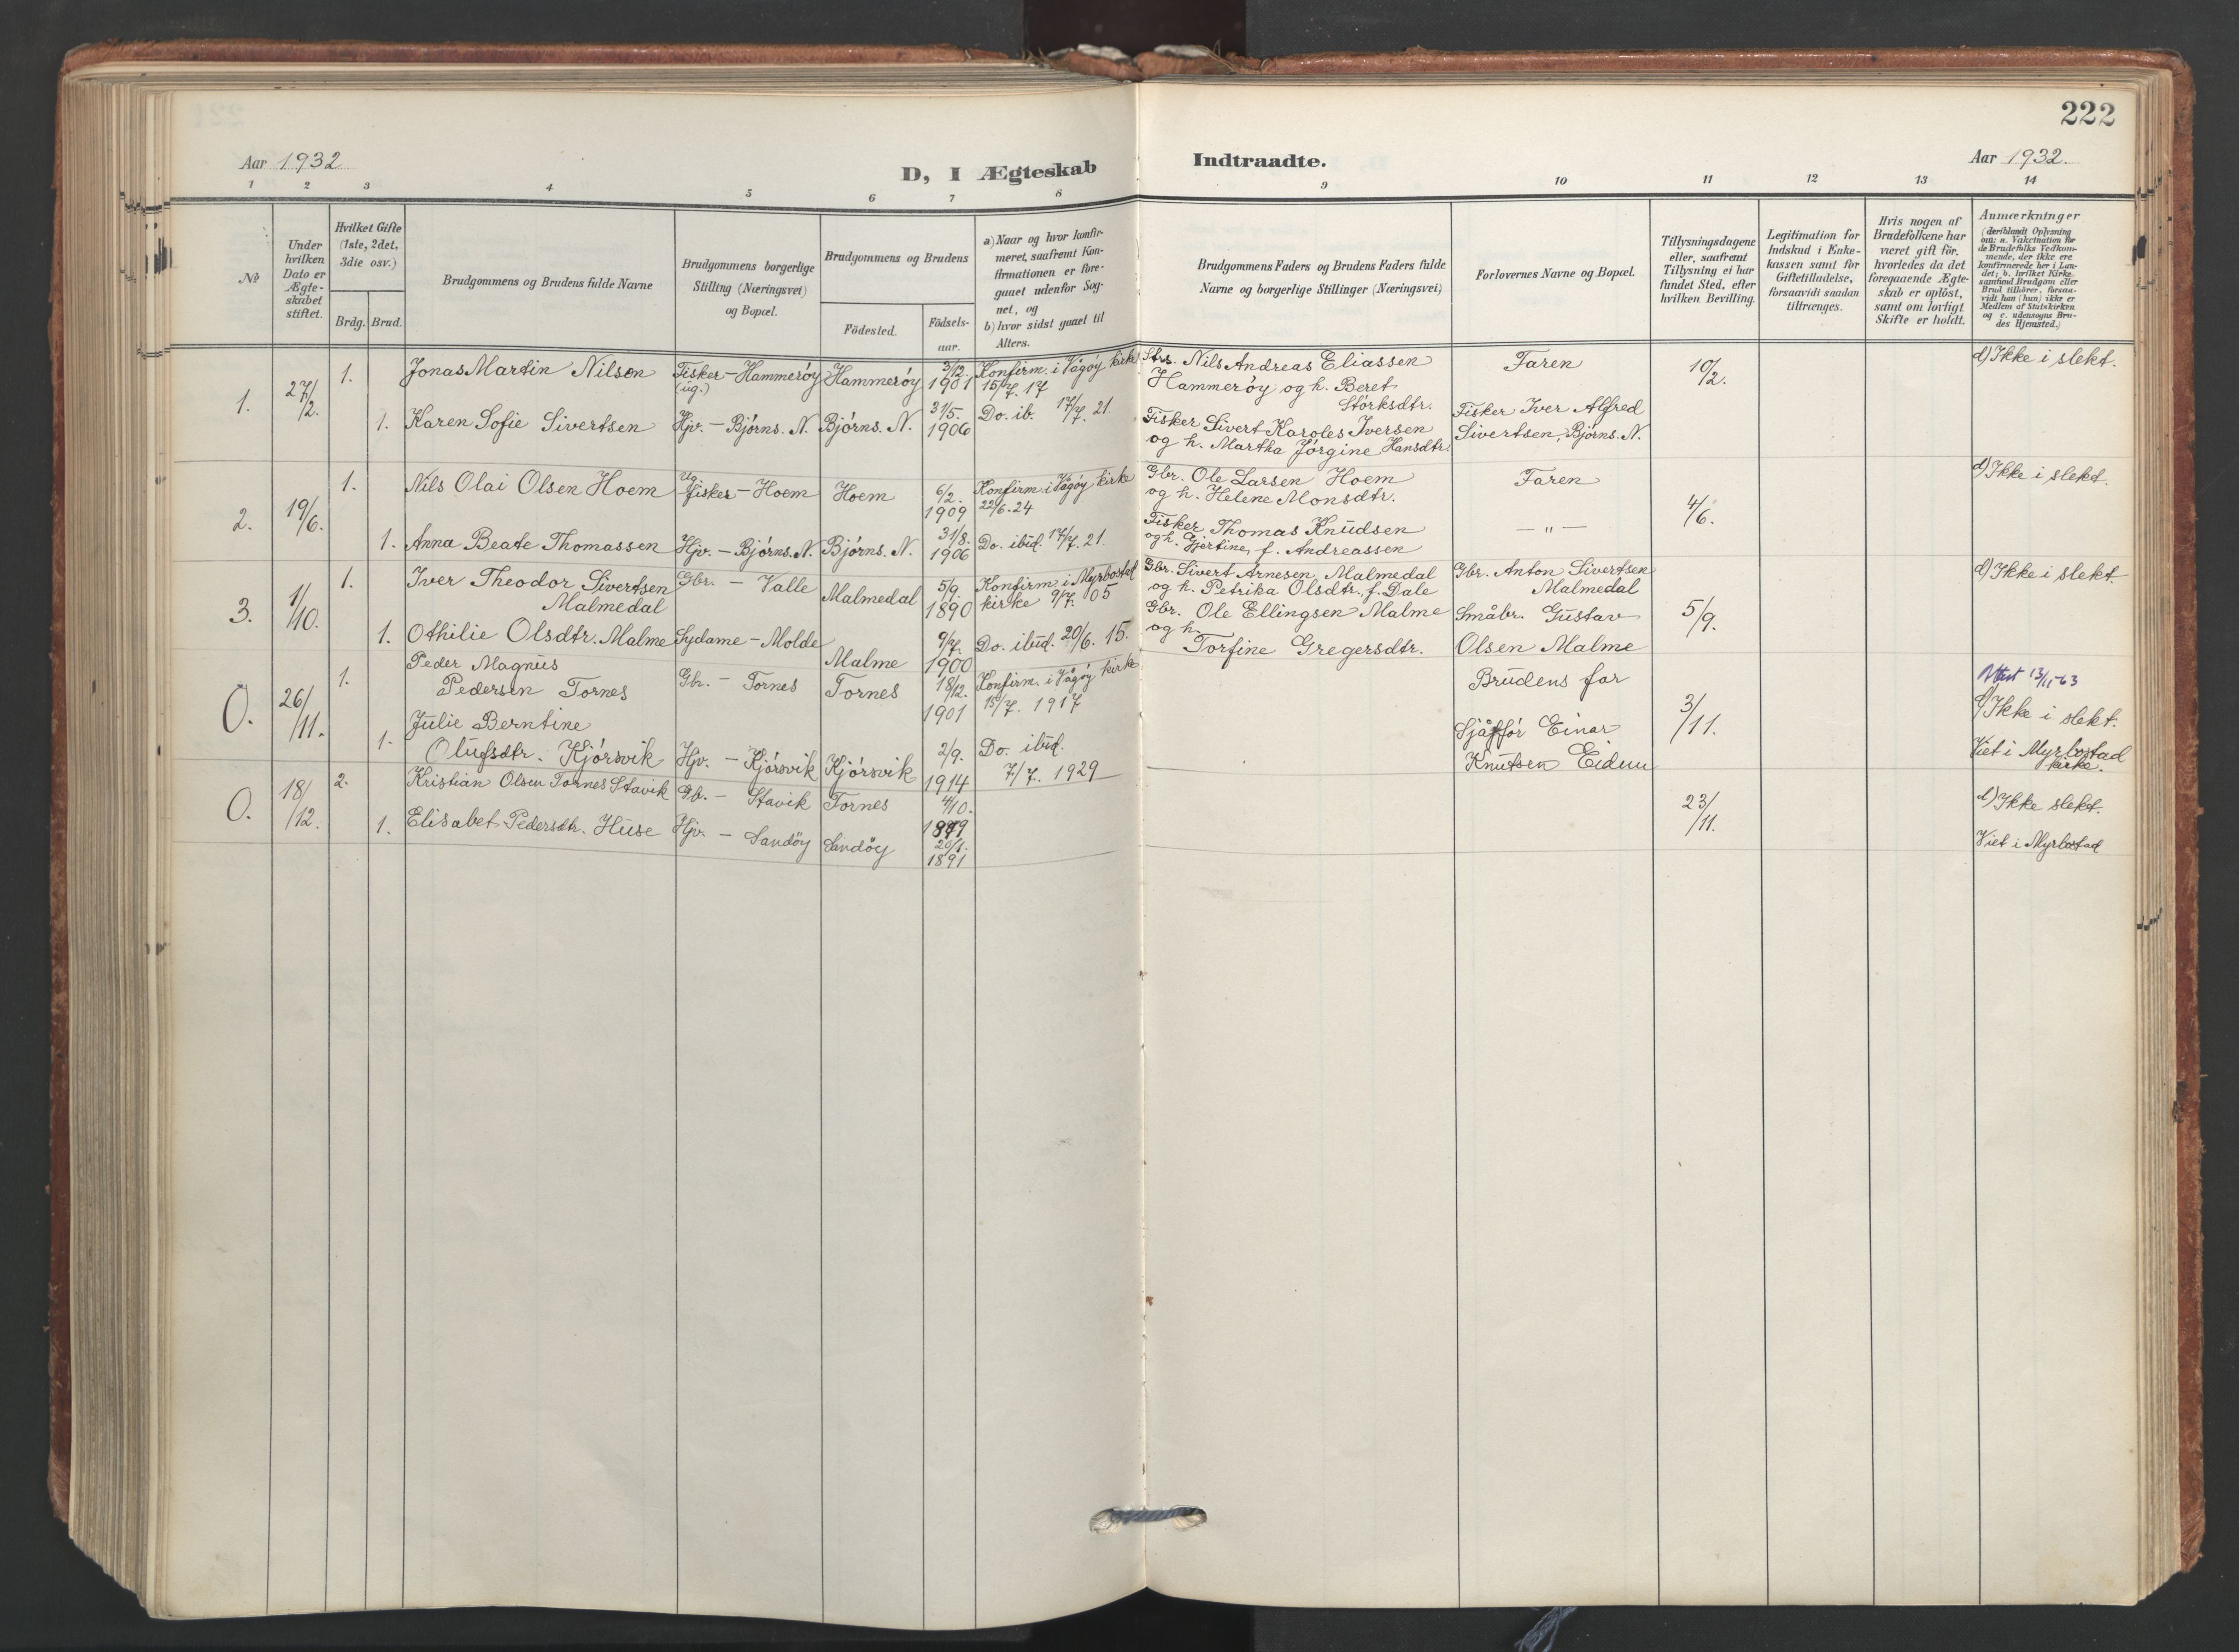 222
Aar 1932
D, I Ægteskab
Indtraadte.
Aar 1932.
1 2 3 4 5 6 7 8 9 10 11 12 13 14
No
Under
hvilken
Dato er
Ægte-
skabet
stiftet.
Hvilket Gifte
(1ste, 2det,
3die osv.)
Brdg. Brud.
Brudgommens og Brudens fulde Navne
Brudgommens borgerlige
Stilling (Næringsvei)
og Bopæl.
Brudgommens og Brudens
Födested.
Födsels-
aar.
a) Naar og hvor konfir-
meret, saafremt Kon-
firmationen er fore-
gaaet udenfor Sog-
net, og
b) hvor sidst gaaet til
Alters.
Brudgommens Faders og Brudens Faders fulde
Navne og borgerlige Stillinger (Næringsvei)
Forlovernes Navne og Bopæl.
Tillysningsdagene
eller, saafremt
Tillysning ei har
fundet Sted, efter
hvilken Bevilling.
Legitimation for
Indskud i Enke-
kassen samt for
Giftetilladelse,
forsaavidt saadan
tiltrænges.
Hvis nogen af
Brudefolkene har
været gift för,
hvorledes da det
foregaaende Ægte-
skab er oplöst,
samt om lovligt
Skifte er holdt.
Anmærkninger
(deriblandt Oplysning
om: a. Vakcination for
de Brudefolks Vedkom-
mende, der ikke ere
konfirmerede her i Lan-
det; b. hvilket Kirke-
samfund Brudgom eller
Brud tilhörer, forsaa-
vidt han (hun) ikke er
Medlem af Statskirken
og c. udensogns Bru-
des Hjemsted.)
1. 27/2. 1. Jonas Martin Nilsen Fisker - Hammerøy (ug.) Hammerøy 3/12. 1901 Konfirm. i Vågøy kirke 15/7. 17
Strs. Nils Andreas Eliassen
Hammerøy og h. Beret
Størksdtr.
Faren 10/2. d) Ikke i slekt.
1. Karen Sofie Sivertsen Hjv. - Bjørns. N. Bjørns. N. 31/5. 1906 Do. ib. 17/7. 21.
Fisker Sivert Karoles Iversen
og h. Martha Jørgine Hansdtr.
Fisker Iver Alfred
Sivertsen, Bjørns. N.
2. 19/6. 1. Nils Olai Olsen Hoem Ug. fisker - Hoem Hoem 6/2. 1909 Konfirm. i Vågøy kirke 22/6. 24
Gbr. Ole Larsen Hoem
og h. Helene Monsdtr.
Faren 4/6. d) Ikke i slekt.
1. Anna Beate Thomassen Hjv. - Bjørns. N. Bjørns. N. 31/8. 1906 Do. ibid. 17/7. 21.
Fisker Thomas Knudsen
og h. Gjertine, f. Andreassen
— " —
3. 1/10. 1. Iver Theodor Sivertsen
Malmedal
Gbr. - Valle Malmedal 5/9. 1890 Konfirm. i Myrbostad
kirke 9/7. 05
Gbr. Sivert Arnesen Malmedal
og h. Petrika Olsdtr., f. Dale
Gbr. Anton Sivertsen
Malmedal
5/9. d) Ikke i slekt
1. Othilie Olsdtr. Malme Sydame - Molde Malme 9/7. 1900 Do. ibid. 20/6. 15.
Gbr. Ole Ellingsen Malme
og h.
Torfine Gregersdtr.
Småbr. Gustav
Olsen Malme
0. 26/11. 1. Peder Magnus
Pedersen Tornes
Gbr. - Tornes Tornes 18/12. 1901 Konfirm. i Vågøy kirke
15/7. 1917
Brudens far 3/11. Attest 13/11-63
d) Ikke i slekt.
1. Julie Berntine
Olufsdtr. Kjørsvik
Hjv. - Kjørsvik Kjørsvik 2/9. 1914 Do. ibid.
7/7. 1929
Sjåfør Einar
Knutsen Eidem
Viet i Myrbostad
kirke.
0. 18/12. 2. Kristian Olsen Tornes Stavik Gb. - Stavik Tornes 4/10. 1879
23/11. d) Ikke slekt.
1. Elisabet Pedersdtr. Huse Hjv. - Sandöy Sandöy 20/1. 1891
Viet i Myrbostad